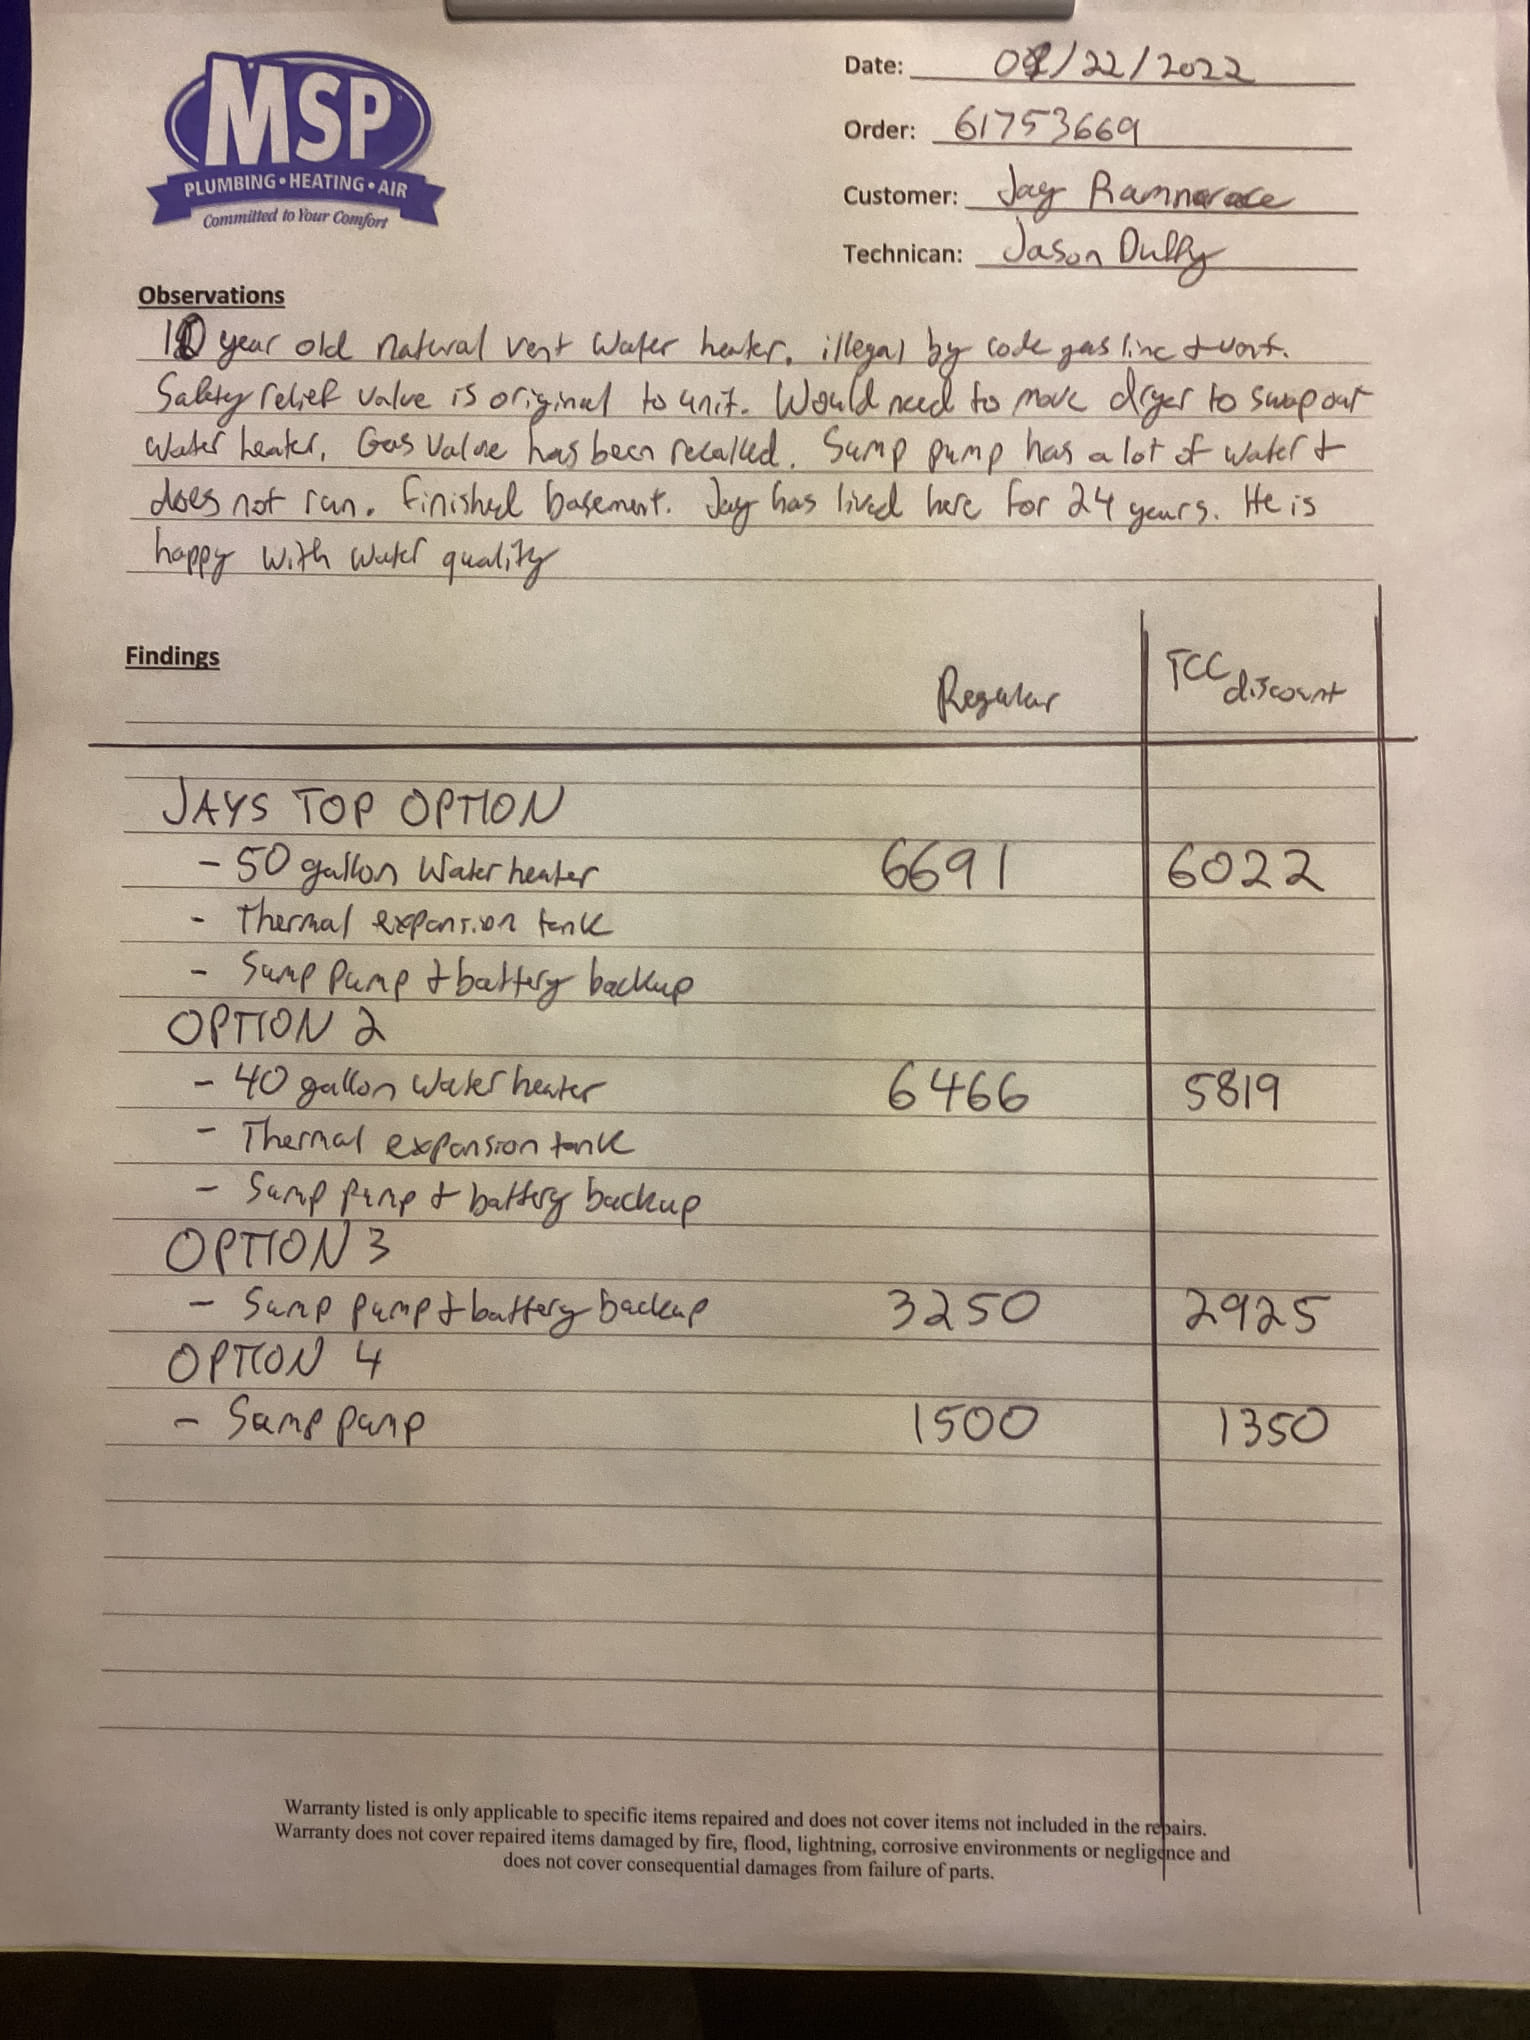 MSP
PLUMBING • HEATING • AIR
Committed to Your Comfort
Date: /22/2022
Order: 61753669
Customer: Jay
Technican: Jason Duffy
Observations
10 year old natural vent water heater. illegal by code gas line + vent.
Safety relief valve is original to unit. Would need to move dryer to swap out
water heater. Gas Valve has been recalled. Sump pump has a lot of water +
does not run. Finished basement. Jay has lived here for 24 years. He is
happy with water quality
Findings
Regular TCC discount
JAYS TOP OPTION
- 50 gallon Water heater 6691 6022
- Thermal expansion tank
- Sump Pump + battery backup
OPTION 2
- 40 gallon Water heater 6466 5819
- Thermal expansion tank
- Sump pump + battery backup
OPTION 3
- Sump pump + battery backup 3250 2925
OPTION 4
- Sump pump 1500 1350
Warranty listed is only applicable to specific items repaired and does not cover items not included in the repairs.
Warranty does not cover repaired items damaged by fire, flood, lightning, corrosive environments or negligence and
does not cover consequential damages from failure of parts.